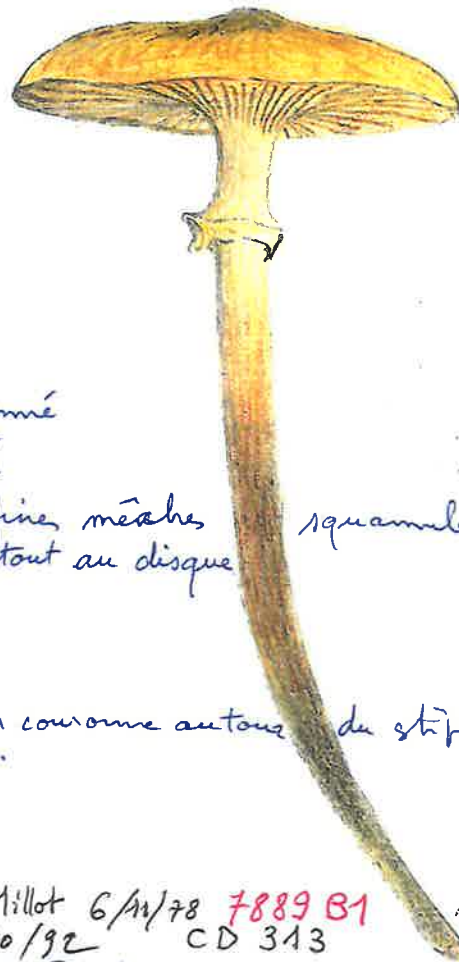 mé
mèches squamul
tout au disque
couronne autour du stip
illot 6/11/78 7889 B1
0/92 CD 313